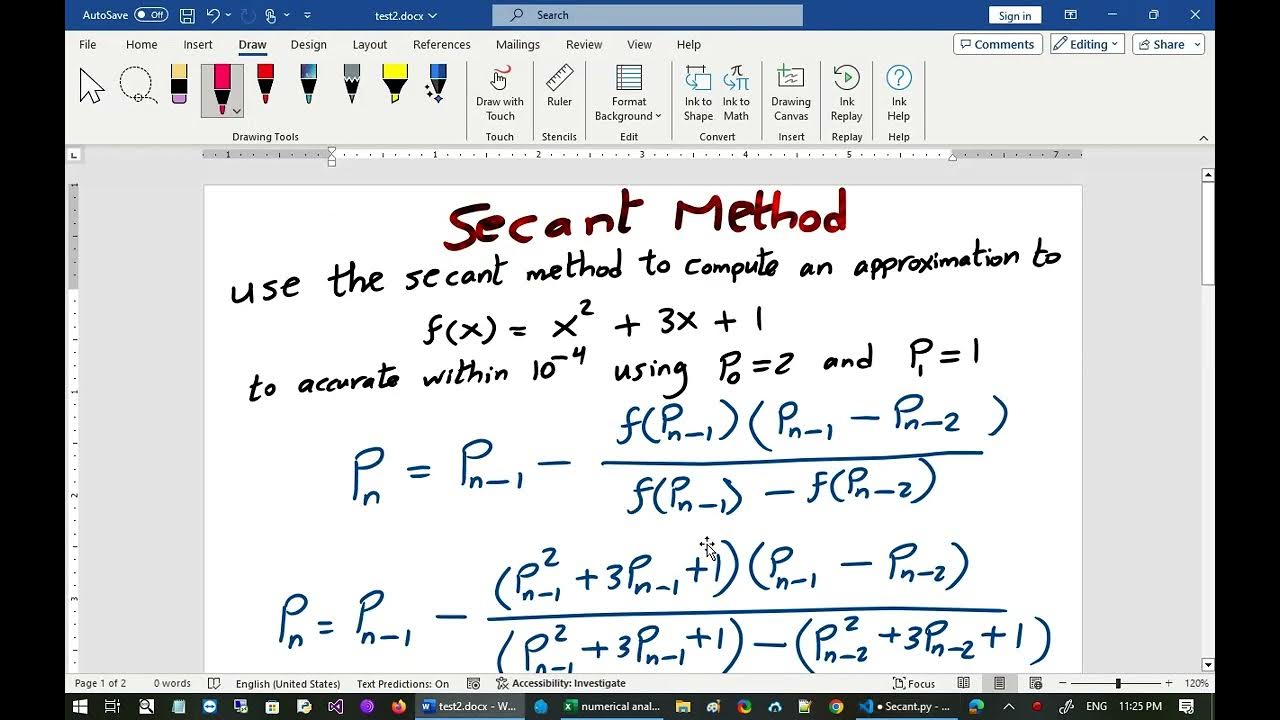 AutoSave Off test2.docx Search Sign in
File Home Insert Draw Design Layout References Mailings Review View Help Comments Editing Share
Draw with Touch Ruler Format Background Ink to Shape Ink to Math Drawing Canvas Ink Replay Ink Help
Drawing Tools Touch Stencils Edit Convert Insert Replay Help
1 1 2 3 4 5 7
Secant Method
use the secant method to compute an approximation to
f(x) = x² + 3x + 1
to accurate within 10⁻⁴ using P₀ = 2 and P₁ = 1
Pₙ = Pₙ₋₁ − f(Pₙ₋₁)(Pₙ₋₁ − Pₙ₋₂) / f(Pₙ₋₁) − f(Pₙ₋₂)
Pₙ = Pₙ₋₁ − (P²ₙ₋₁ + 3Pₙ₋₁ + 1)(Pₙ₋₁ − Pₙ₋₂) / (P²ₙ₋₁ + 3Pₙ₋₁ + 1) − (P²ₙ₋₂ + 3Pₙ₋₂ + 1)
Page 1 of 2 0 words English (United States) Text Predictions: On Accessibility: Investigate Focus 120%
test2.docx - W... numerical anal... Secant.py - ... ENG 11:25 PM